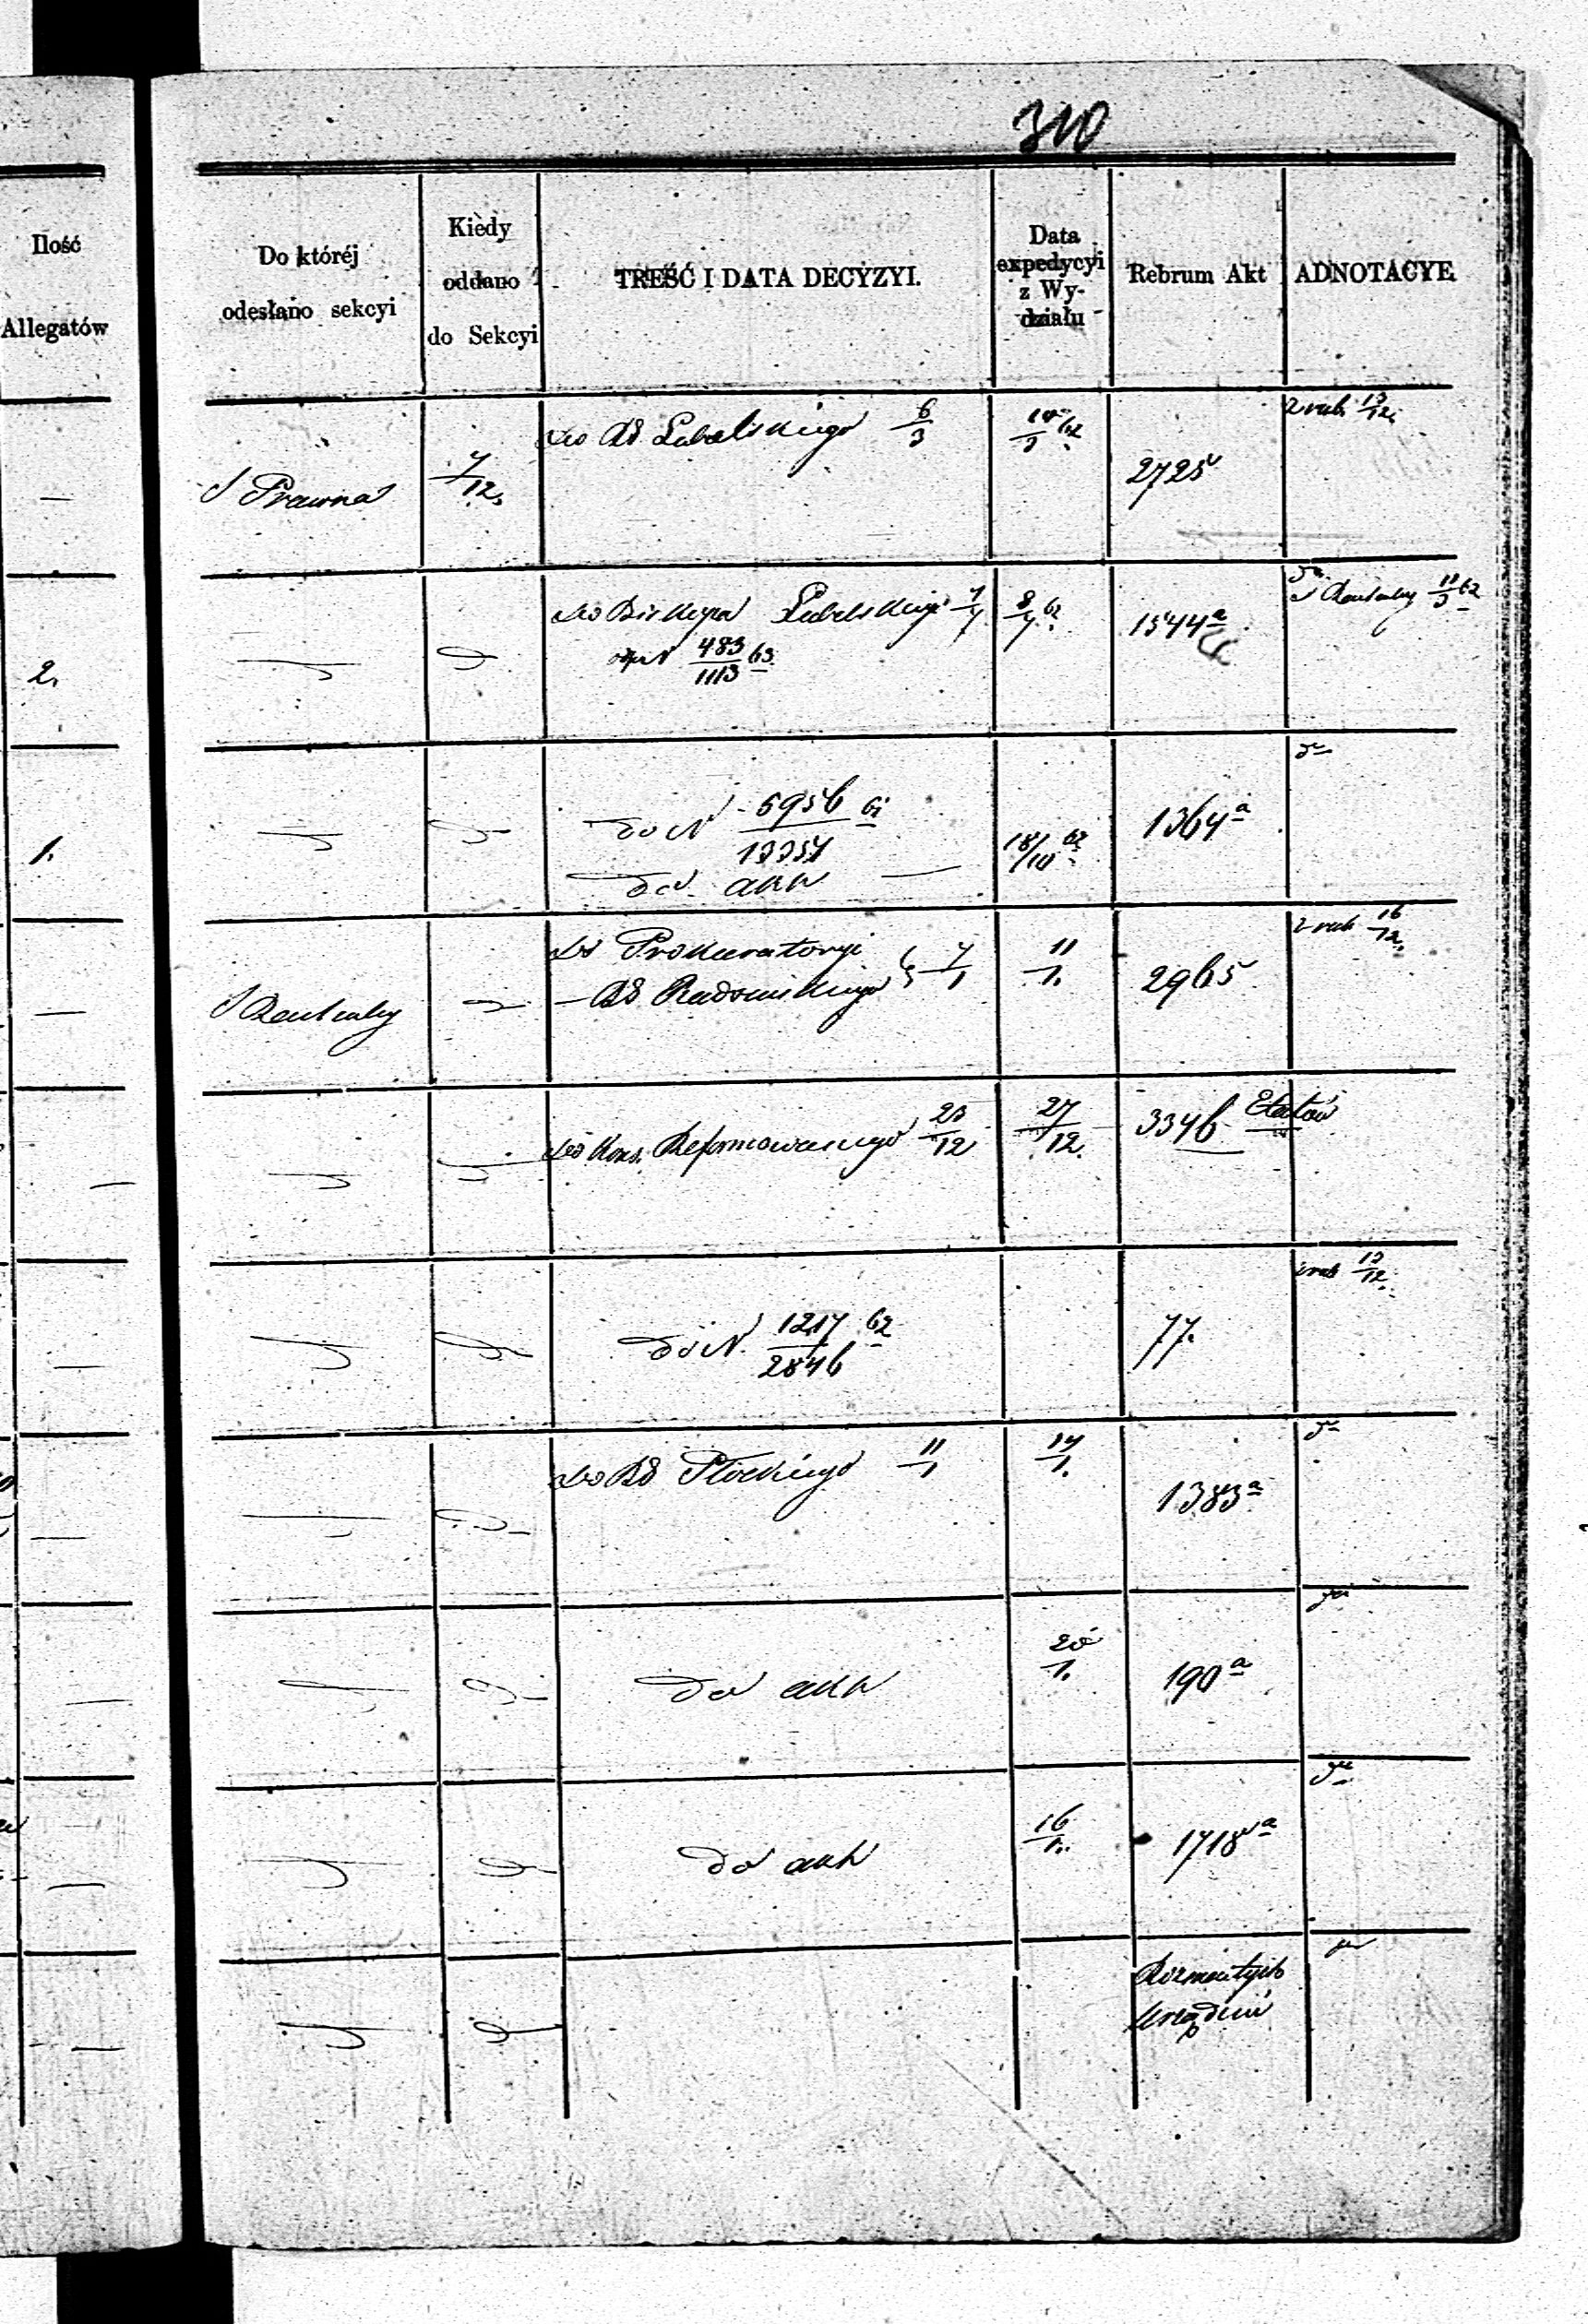 310
Ilość
Allegatów
Do któréj
odesłano sekcyi
Kiedy
oddano
do Sekcyi
TREŚĆ I DATA DECYZYI.
Data
expedycyi
z Wy-
działu
Rebrum Akt
ADNOTACYE
—
S Prawna
7/12
Do RG Lubelskiego 6/3
10/3 62
2725
z rub. 13/12
2.
Do Biskupa Lubelskiego 7/4
483/1113 63
8/4 62
1544 a
S Centralny 11/3 62
1.
do N 6956/13354 61
do akt —
18/10 62
1364 a
—
S Centralny
Do Prokuratoryi
— RG Radomskiego 7/1
11/1
2965
z rub 16/12
—
Do Kons. Reformowanego 23/12
27/12
3346 Etatów
—
do N. 1217/2846 62
77.
z rub 13/12
—
Do RG Płockiego 11/1
14/1
1383 a
—
do akt
20/1
190 a
—
do akt
16/1
1718 a
—
Rozmaitych
Urządzeń